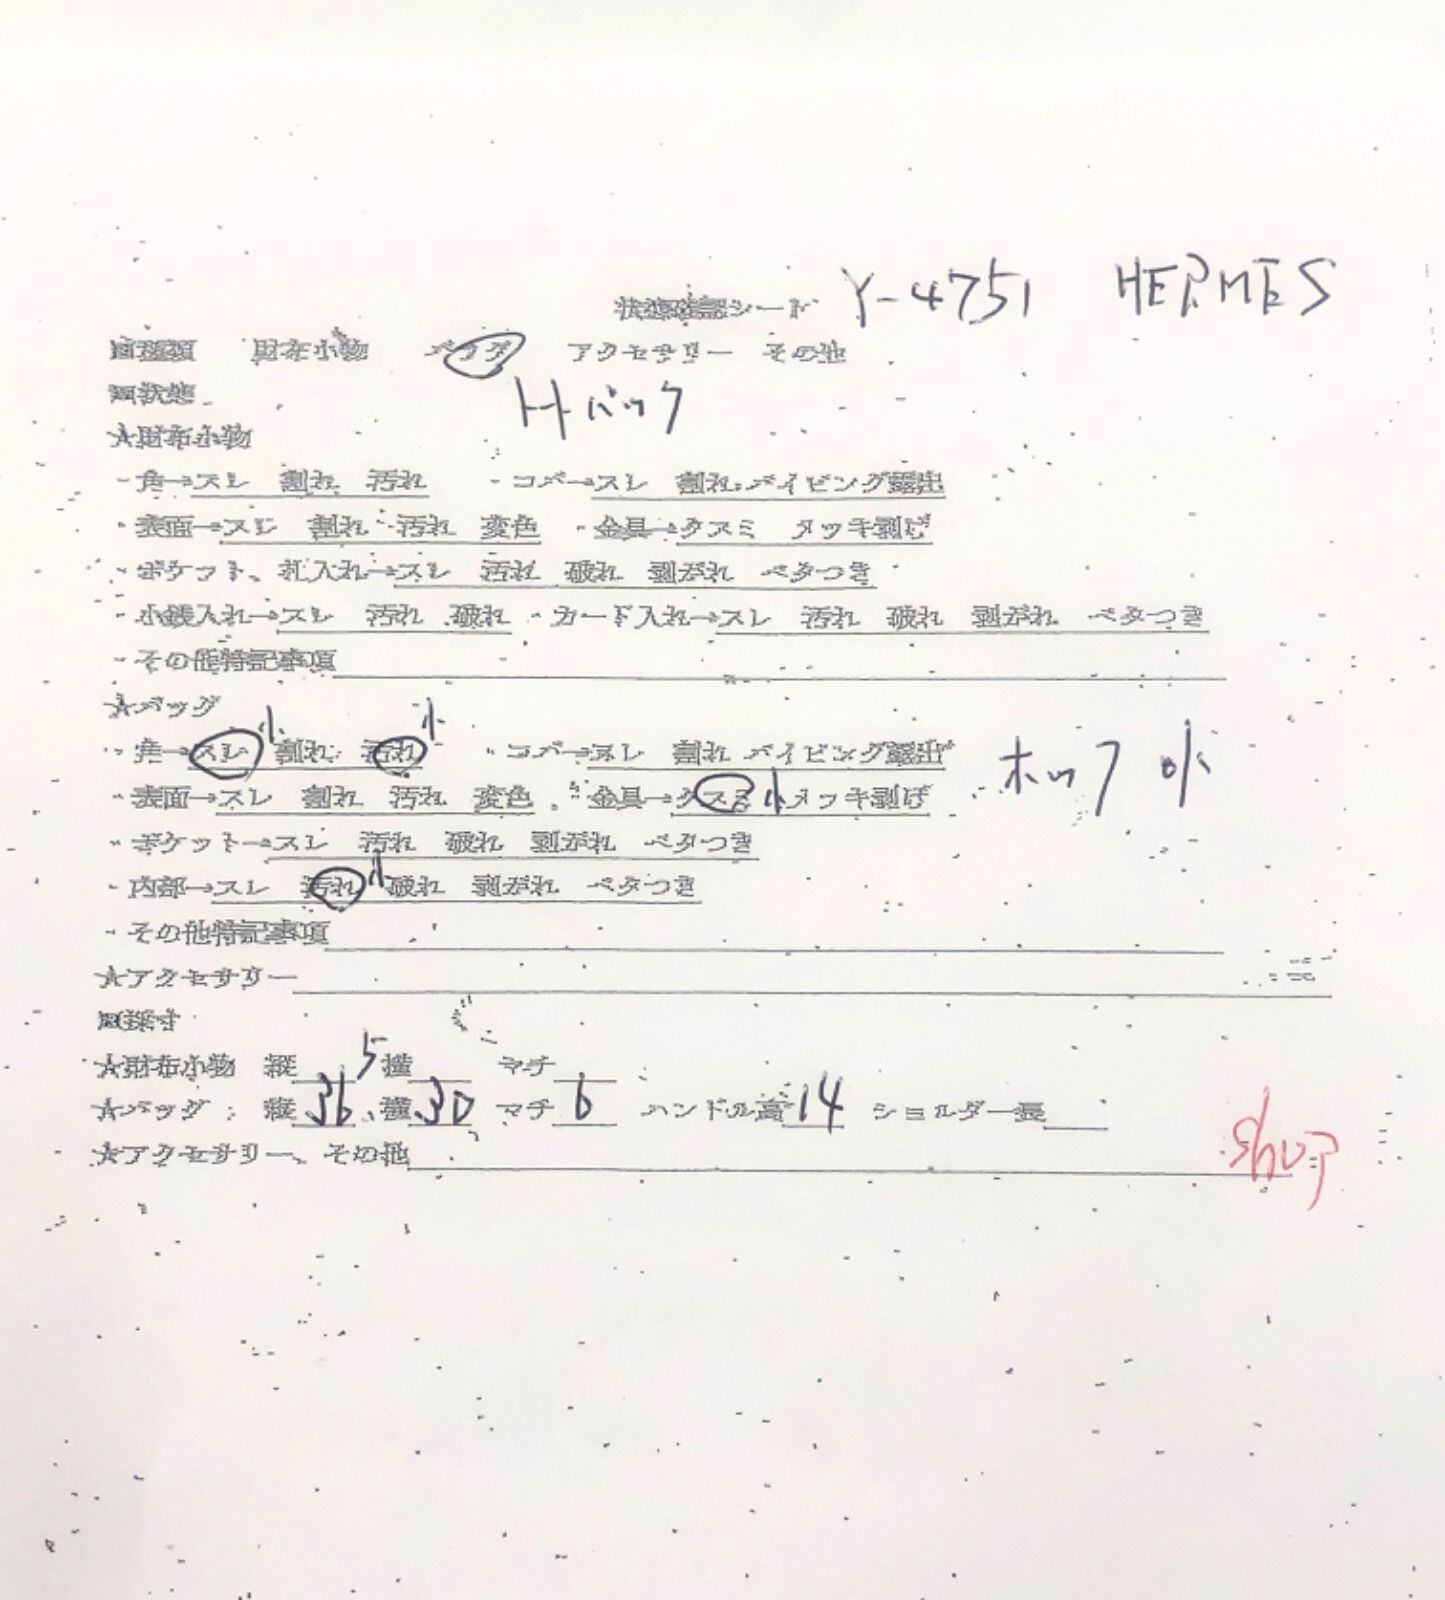 状態確認シート Y-4751 HERMES
■種類 財布小物 バッグ アクセサリー その他
■状態 Hバック
★財布小物
・角→スレ 割れ 汚れ ・コバ→スレ 割れ パイピング露出
・表面→スレ 割れ 汚れ 変色 ・金具→クスミ メッキ剥げ
・ポケット、札入れ→スレ 汚れ 破れ 剥がれ ベタつき
・小銭入れ→スレ 汚れ 破れ ・カード入れ→スレ 汚れ 破れ 剥がれ ベタつき
・その他特記事項
★バッグ
・角→スレ小 割れ 汚れ小 ・コバ→スレ 割れ パイピング露出 ホック
・表面→スレ 割れ 汚れ 変色 ・金具→クスミ小 メッキ剥げ
・ポケット→スレ 汚れ 破れ 剥がれ ベタつき
・内部→スレ 汚れ小 破れ 剥がれ ベタつき
・その他特記事項
★アクセサリー
■採寸
★財布小物 縦 横 マチ
★バッグ:縦36.5 横30 マチ6 ハンドル高14 ショルダー長
★アクセサリー、その他
shop